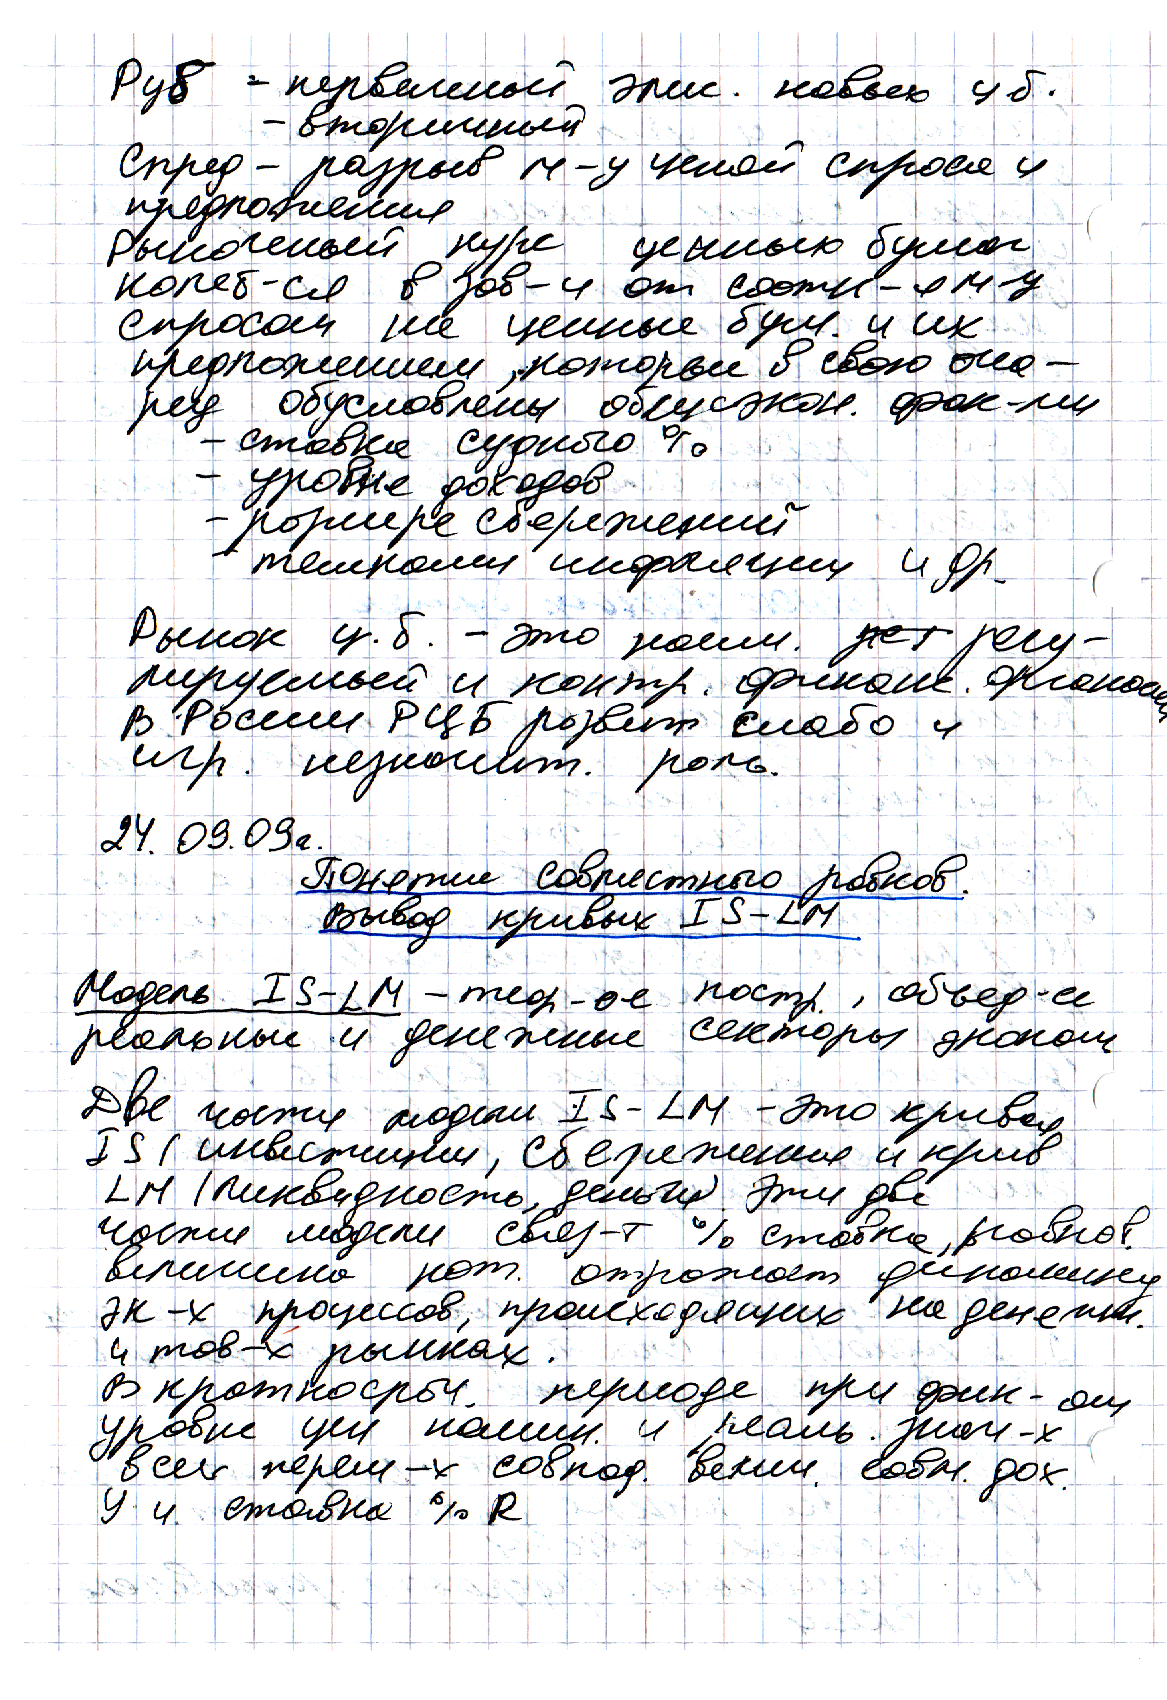 Руб - первичный эмис. новых ц б.
- вторичный
Спред - разрыв м-у ценой спроса и
предложения
Рыночный курс ценных бумаг
колеб-ся в зав-и от соотн-я м-у
спросом на ценные бум. и их
предложением, которые в свою оче-
ред обусловлены общеэкон. фак-ми
- ставка судного %
- уровне доходов
- размере сбережений
- темпами инфляции и др.
Рынок ц.б. - это наим. регу-
лируемый и контр. финанс. органами
В Росии РЦБ развит слабо и
игр. незначит. роль.
24. 09.09г.
Понятие совместного равнов.
Вывод кривых IS-LM
Модель IS-LM - теор-ое постр., объед-е
реальные и денежные секторы эконом
Две части модели IS-LM - это кривая
IS (инвестиции, сбережения и крив
LM (ликвидность, деньги) Эти две
части модели связ-т % ставка, равнов.
величина кот. отражает динамику
эк-х процессов, происходящих на денежн.
и тов-х рынках.
В краткосроч. периоде при фик-ом
уровне цен номин. и реаль. знач-х
всех перем-х совпад. велич. совм. дох.
У и ставка % R